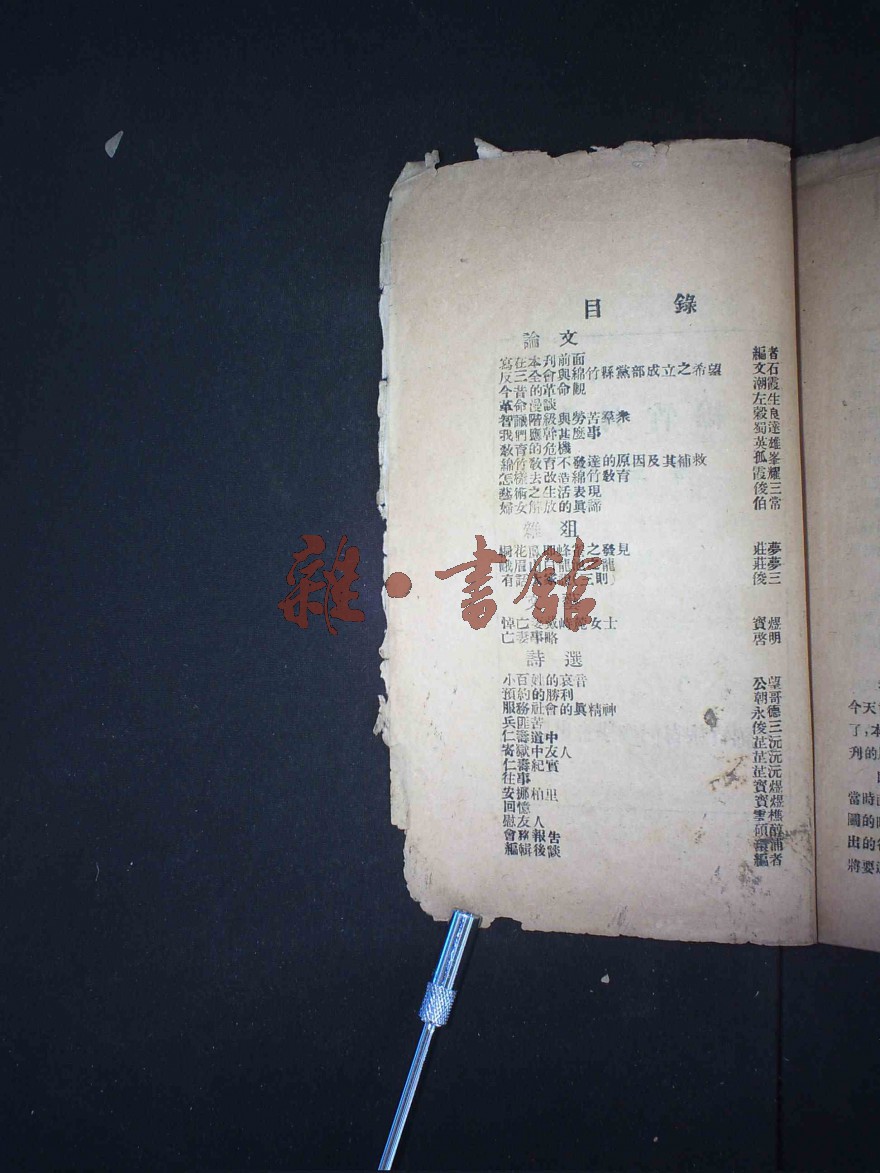 目 錄
論文
寫在本刋前面 編者
反三全會與綿竹縣黨部成立之希望 文石
今昔的革命觀 潮霞
革命漫談 左生
智識階級與勞苦羣衆 穀良
我們應幹甚麽事 蜀達
敎育的危機 英雄
綿竹敎育不發達的原因及其補救 孤峯
怎樣去改造綿竹敎育 霞耀
藝術之生活表現 俊三
婦女解放的眞諦 伯常
雜俎
桐花 之發見 莊夢
峨眉山 龍 莊夢
有 三則 俊三
悼亡妻 女士 賓煜
亡妻事略 啓明
詩選
小百姓的哀音 公望
預約的勝利 朝哥
服務社會的眞精神 永德
兵匪苦 俊三
仁壽道中 芷沅
寄獄中友人 芷沅
仁壽紀實 芷沅
往事 賓煜
安娜柏里 賓煜
回憶 雪樵
慰友人 碩醇
會務報告
編輯後談 編者
今天
了,本
刋的
當時
國的
出的
將要
雜·書館